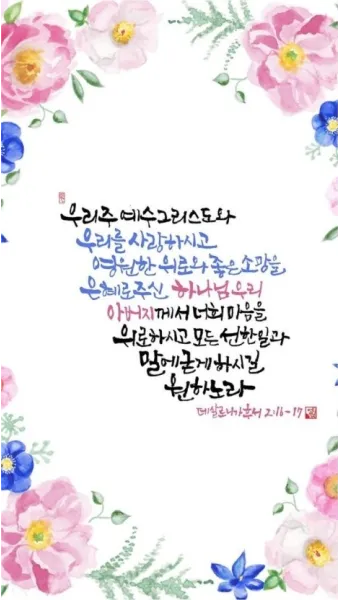 우리주 예수그리스도와
우리를 사랑하시고
영원한 위로와 좋은 소망을
은혜로 주신 하나님 우리
아버지께서 너희 마음을
위로하시고 모든 선한일과
말에 굳게 하시길
원하노라
데살로니가후서 2:16-17